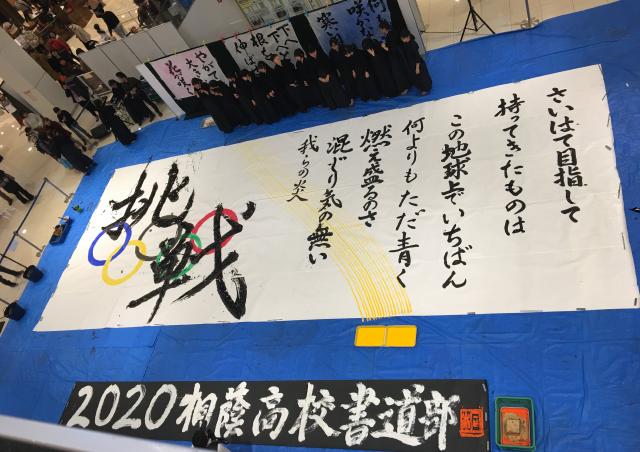 さいはて目指して
持ってきたものは
この地球上でいちばん
何よりもただ青く
燃え盛るのさ
混じり気の無い
我らの炎
挑戦
2020桐蔭高校書道部